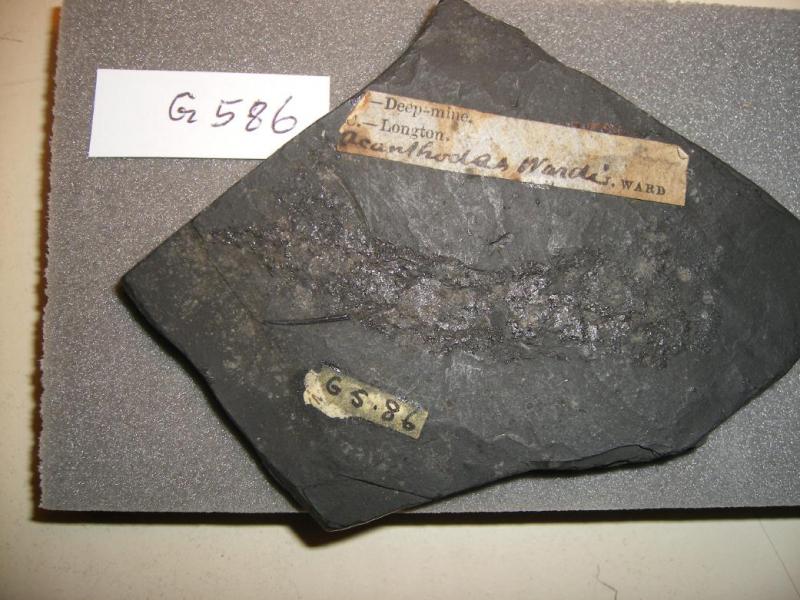 G 586
—Deep-mine.
.—Longton.
Acanthodas Wardi. WARD
G 5.86